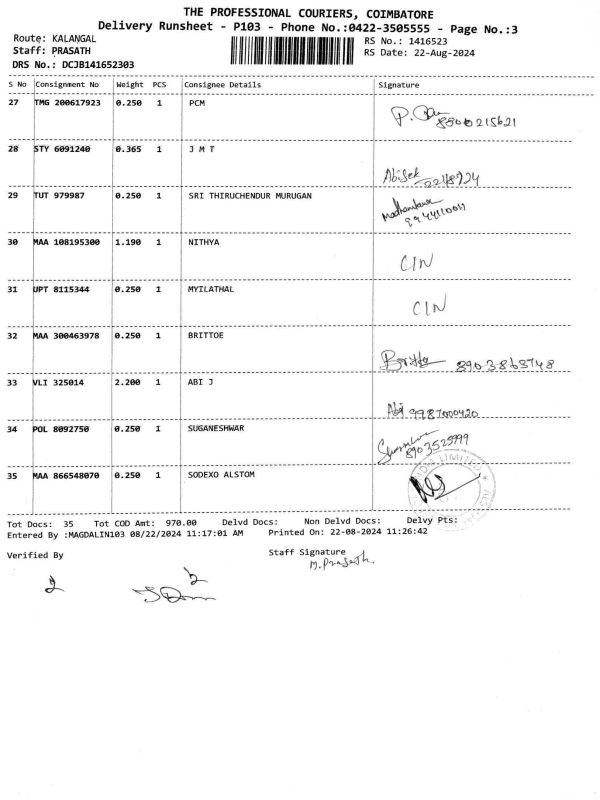 THE PROFESSIONAL COURIERS, COIMBATORE
Delivery Runsheet - P103 - Phone No.:0422-3505555 - Page No.:3
Route: KALANGAL RS No.: 1416523
Staff: PRASATH RS Date: 22-Aug-2024
DRS No.: DCJB141652303
S No Consignment No Weight PCS Consignee Details Signature
27 TMG 200617923 0.250 1 PCM
28 STY 6091240 0.365 1 J M T
Abisek
29 TUT 979987 0.250 1 SRI THIRUCHENDUR MURUGAN
30 MAA 108195300 1.190 1 NITHYA
CIN
31 UPT 8115344 0.250 1 MYILATHAL
CIN
32 MAA 300463978 0.250 1 BRITTOE
8903863748
33 VLI 325014 2.200 1 ABI J
Abi 9987000420
34 POL 8092750 0.250 1 SUGANESHWAR
8903525999
35 MAA 866548070 0.250 1 SODEXO ALSTOM
Tot Docs: 35 Tot COD Amt: 970.00 Delvd Docs: Non Delvd Docs: Delvy Pts:
Entered By :MAGDALIN103 08/22/2024 11:17:01 AM Printed On: 22-08-2024 11:26:42
Verified By Staff Signature
M.Prasath